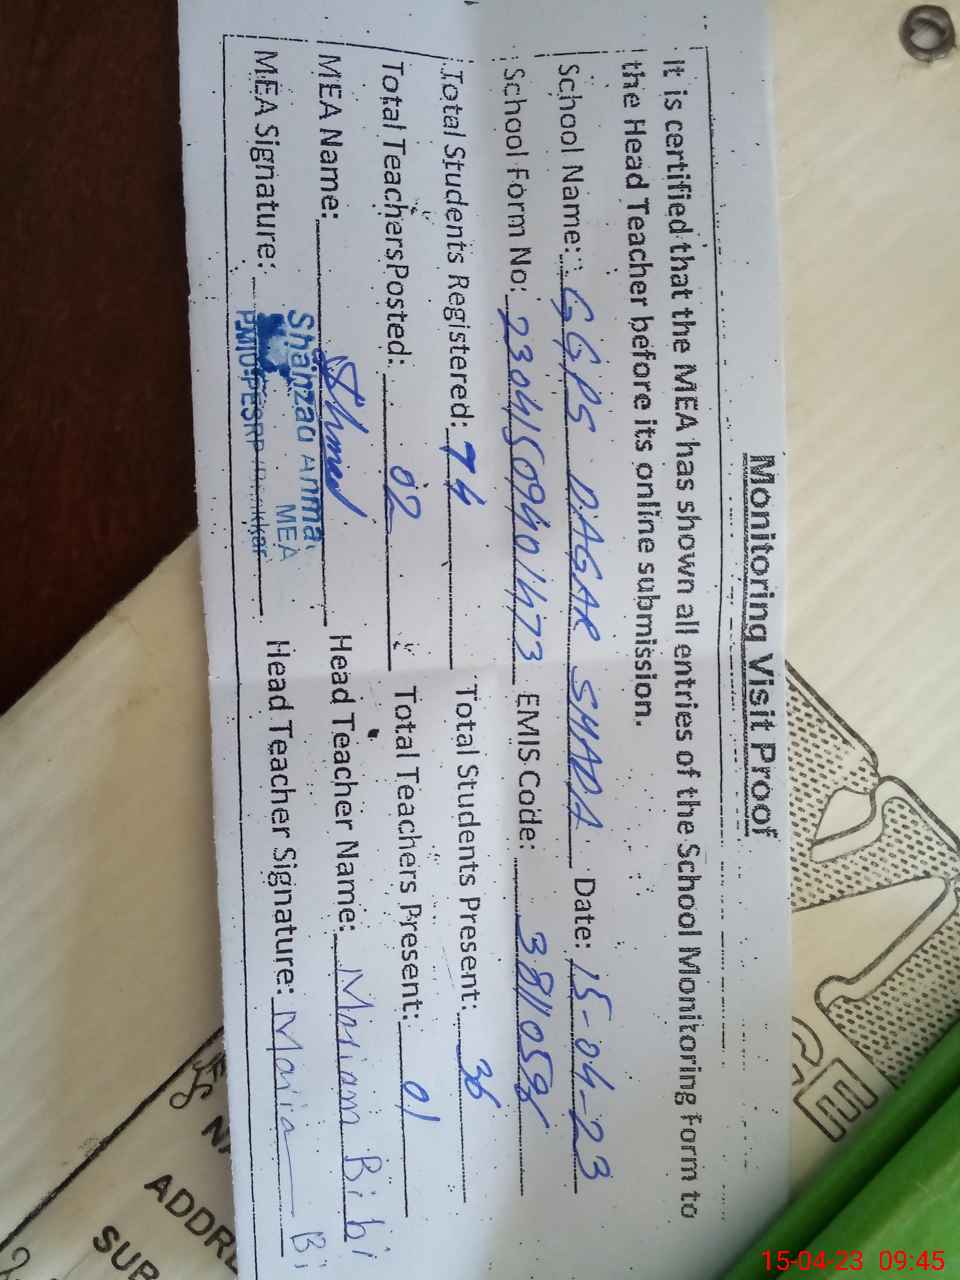 Monitoring Visit Proof
It is certified that the MEA has shown all entries of the School Monitoring Form to
the Head Teacher before its online submission.
School Name: GGPS DAGAR SMADA Date: 15-04-23
School Form No: 23041509401473 EMIS Code:
Total Students Registered: 74 Total Students Present: 36
Total Teachers Posted: 02 Total Teachers Present: 01
MEA Name: Head Teacher Name: Mariam Bibi
MEA Signature: Head Teacher Signature: Maria Bi
Shahzad Ahma
MEA
PMIU-PESRP
ADDRE
SUB
15-04-23 09:45